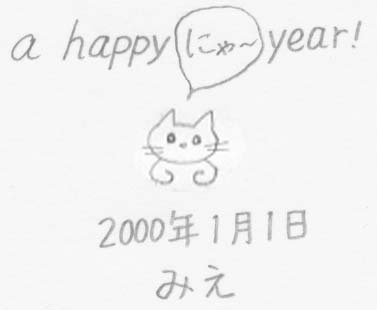 a happy にゃ〜 year!
2000年1月1日
みえ